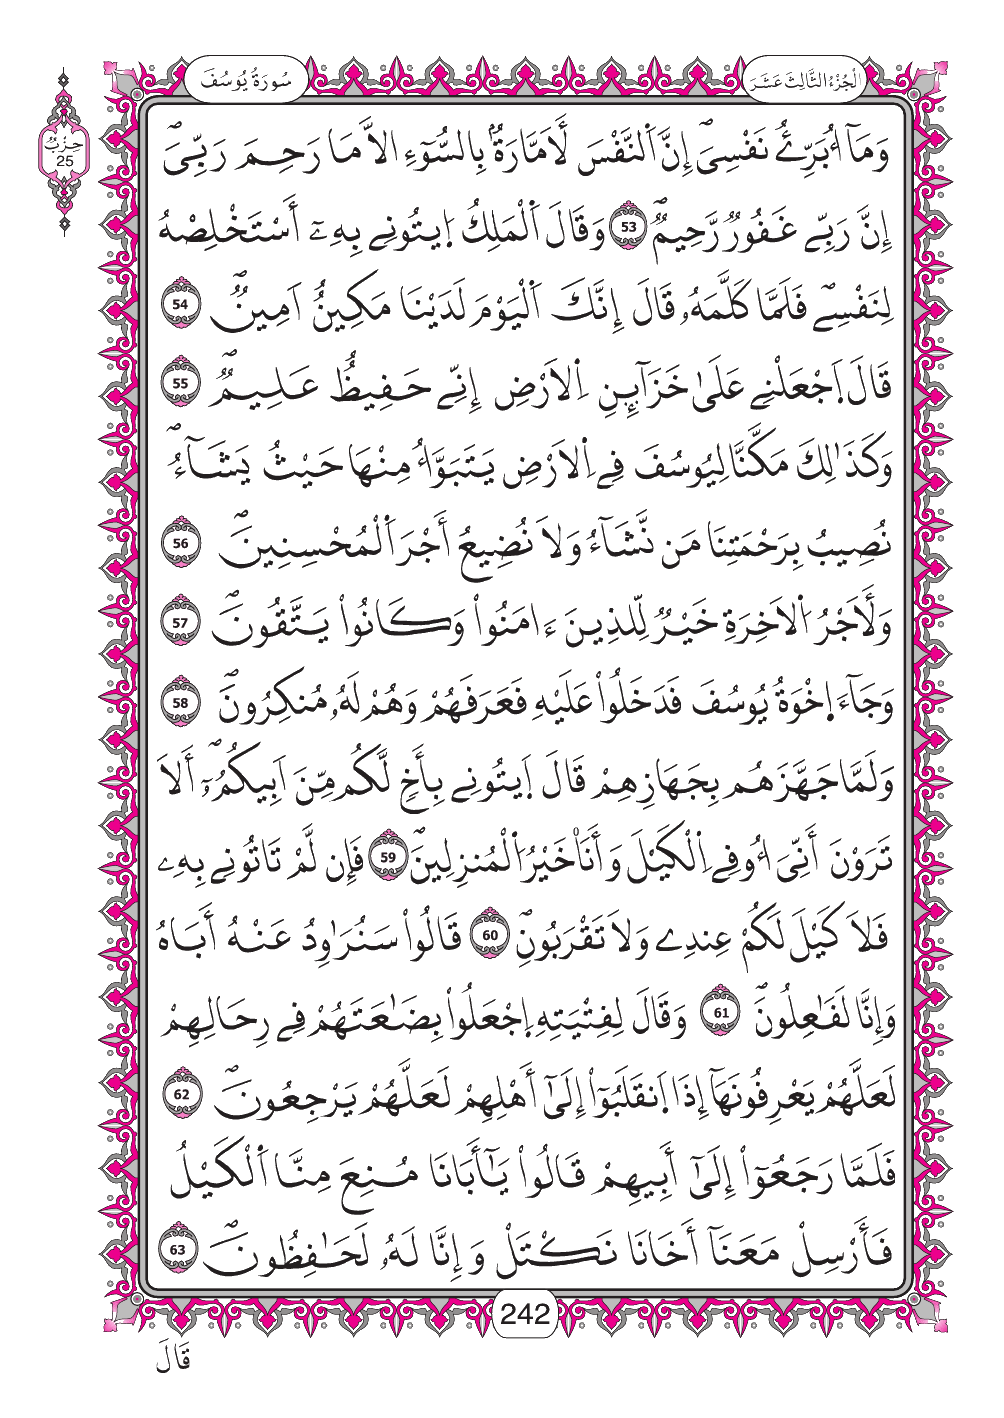 سُورَةُ يُوسُفَ
الْجُزْءُ الثَّالِثَ عَشَرَ
حِزْبٌ
25
وَمَآ أُبَرِّئُ نَفْسِيَۖ إِنَّ اَ۬لنَّفْسَ لَأَمَّارَةُۢ بِالسُّوٓءِ الَّا مَا رَحِمَ رَبِّيَۖ
إِنَّ رَبِّے غَفُورٞ رَّحِيمٞۖ 53 وَقَالَ اَ۬لْمَلِكُ اِ۪يتُونِے بِهِۦٓ أَسْتَخْلِصْهُ
لِنَفْسِےۖ فَلَمَّا كَلَّمَهُۥ قَالَ إِنَّكَ اَ۬لْيَوْمَ لَدَيْنَا مَكِينٌ اَمِينٞۖ 54
قَالَ اَ۪جْعَلْنِے عَلَىٰ خَزَآئِنِ اِ۬لَارْضِ إِنِّے حَفِيظٌ عَلِيمٞۖ 55
وَكَذَٰلِكَ مَكَّنَّا لِيُوسُفَ فِے اِ۬لَارْضِ يَتَبَوَّأُ مِنْهَا حَيْثُ يَشَآءُۖ
نُصِيبُ بِرَحْمَتِنَا مَن نَّشَآءُ وَلَا نُضِيعُ أَجْرَ اَ۬لْمُحْسِنِينَۖ 56
وَلَأَجْرُ اُ۬لَاخِرَةِ خَيْرٞ لِّلذِينَ ءَامَنُواْ وَكَانُواْ يَتَّقُونَۖ 57
وَجَآءَ إِخْوَةُ يُوسُفَ فَدَخَلُواْ عَلَيْهِ فَعَرَفَهُمْ وَهُمْ لَهُۥ مُنكِرُونَۖ 58
وَلَمَّا جَهَّزَهُم بِجَهَازِهِمْ قَالَ اَ۪يتُونِے بِأَخٖ لَّكُم مِّنَ اَبِيكُمُۥٓۖ أَلَا
تَرَوْنَ أَنِّيَ أُوفِے اِ۬لْكَيْلَ وَأَنَا۠ خَيْرُ اُ۬لْمُنزِلِينَۖ 59 فَإِن لَّمْ تَاتُونِے بِهِۦ
فَلَا كَيْلَ لَكُمْ عِندِے وَلَا تَقْرَبُونِۖ 60 قَالُواْ سَنُرَٰوِدُ عَنْهُ أَبَاهُ
وَإِنَّا لَفَٰعِلُونَۖ 61 وَقَالَ لِفِتْيَتِهِ اِ۪جْعَلُواْ بِضَٰعَتَهُمْ فِے رِحَالِهِمْ
لَعَلَّهُمْ يَعْرِفُونَهَآ إِذَا اَ۪نقَلَبُوٓاْ إِلَىٰٓ أَهْلِهِمْ لَعَلَّهُمْ يَرْجِعُونَۖ 62
فَلَمَّا رَجَعُوٓاْ إِلَىٰٓ أَبِيهِمْ قَالُواْ يَٰٓأَبَانَا مُنِعَ مِنَّا اَ۬لْكَيْلُ
فَأَرْسِلْ مَعَنَآ أَخَانَا نَكْتَلْ وَإِنَّا لَهُۥ لَحَٰفِظُونَۖ 63
242
قَالَ